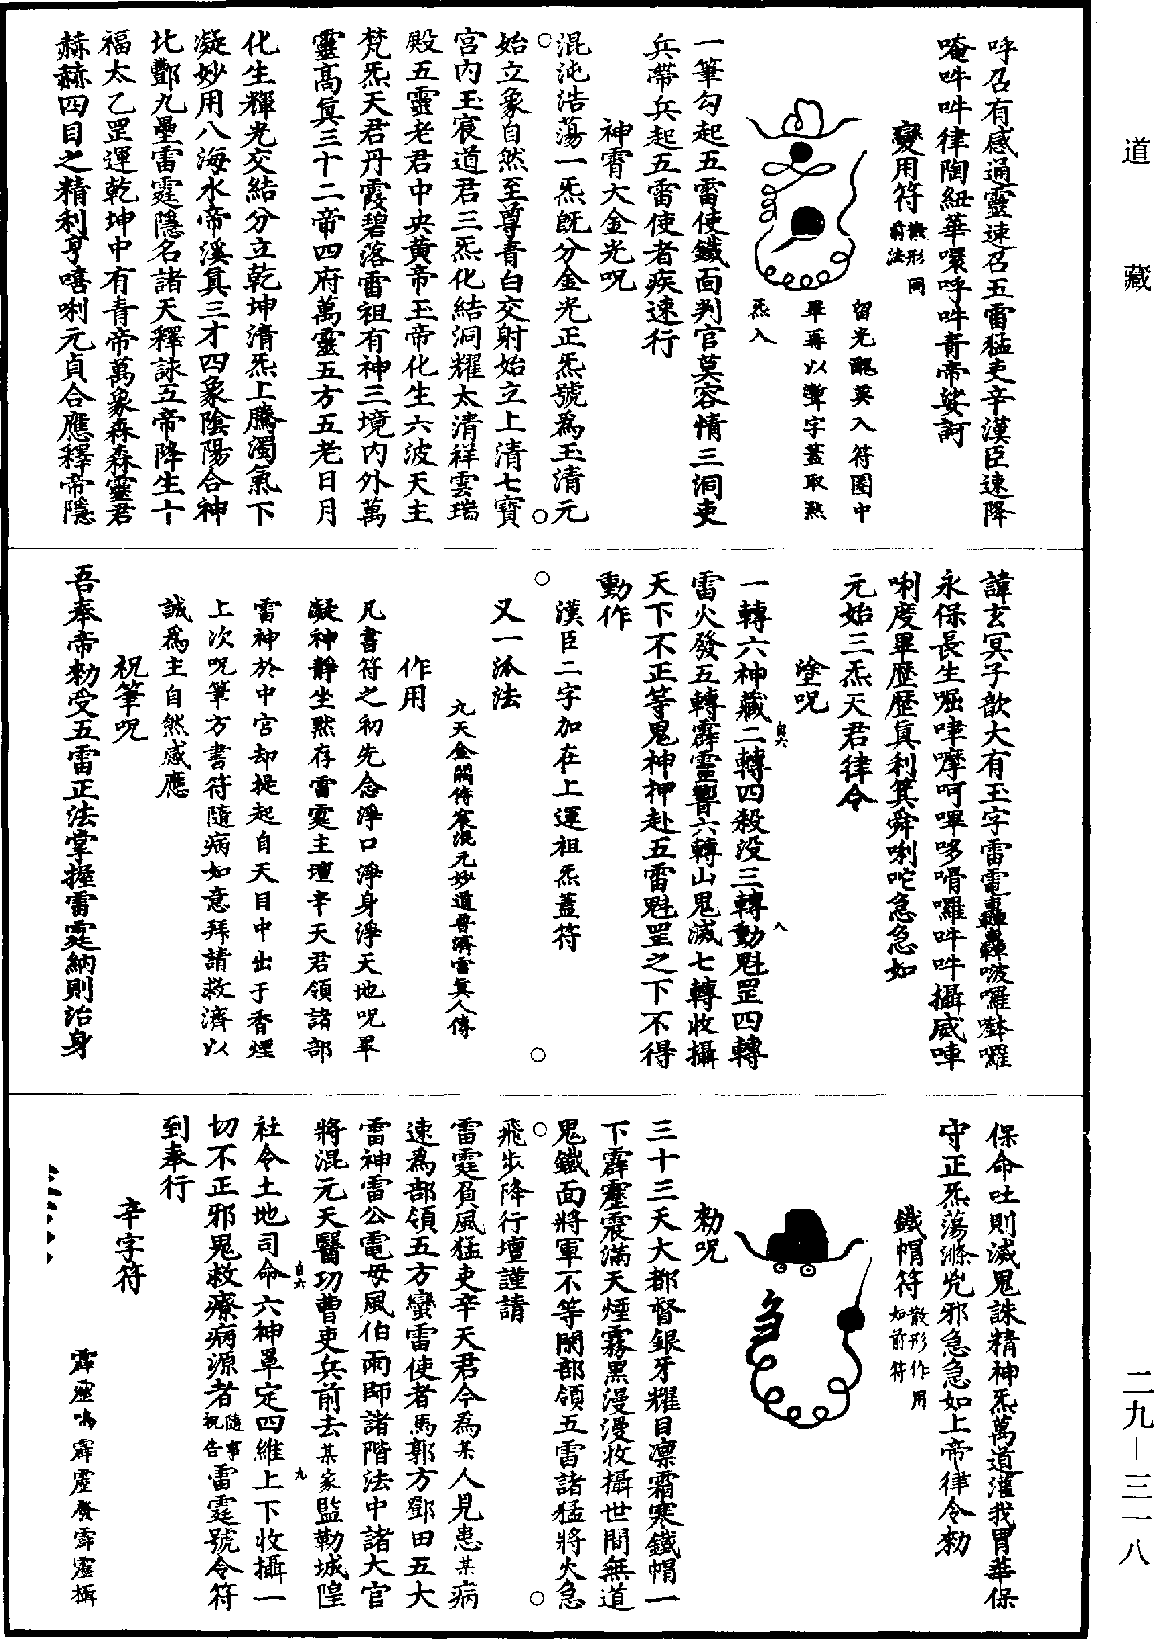 道藏
呼召有感通靈速召五雷猛吏辛漢臣速降
唵吽吽律陶紐華㘑呼吽青帝娑訶
變用符 散形同前法
留光䰢莫入符圈中
畢再以聻字蓋取炁
炁入
一筆勾起五雷使鐵面判官莫容情三洞吏
兵帶兵起五雷使者疾速行
神霄大金光呪
混沌浩蕩一炁既分金光正炁號為玉清元
始立象自然至尊青白交射始立上清七寶
宮內玉宸道君三炁化結洞耀太清祥雲瑞
殿五靈老君中央黃帝玉帝化生六波天主
梵炁天君丹霞碧落雷祖有神三境內外萬
靈高真三十二帝四府萬靈五方五老日月
化生輝光交結分立乾坤清炁上騰濁氣下
凝妙用八海水帝溪真三才四象陰陽合神
北酆九壘雷霆隱名諸天釋詠五帝降生十
福太乙罡運乾坤中有青帝萬象森森靈君
赫赫四目之精利亨嘻唎元貞合應釋帝隱
諱玄冥子歆大有玉字雷電轟轟啵囉囉
永保長生㖶嘩嚤呵嗶哆嗗囉吽吽攝威㖠
唎度畢歷歷真利箕舜唎咜急急如
元始三炁天君律令
塗呪
一轉六神藏二轉四殺没三轉動魁罡四轉
雷火發五轉霹靂響六轉山鬼滅七轉收攝
天下不正等鬼神押赴五雷魁罡之下不得
動作
漢臣二字加在上運祖炁蓋符
又一派法
九天金闕侍宸混元妙道普濟雷真人傳
作用
凡書符之初先念淨口淨身淨天地呪畢
凝神靜坐默存雷霆主壇辛天君領諸部
雷神於中宮却提起自天目中出于香煙
上次呪筆方書符隨病如意拜請救濟以
誠為主自然感應
祝筆呪
吾奉帝勑受五雷正法掌握雷霆納則治身
保命吐則滅鬼誅精神炁萬道灌我胃華保
守正炁蕩滌兇邪急急如上帝律令勑
鐵帽符 散形作用如前符
勑呪
三十三天大都督銀牙耀目凛霜寒鐵帽一
下霹靂震滿天煙霧黑漫漫收攝世間無道
鬼鐵面將軍不等閑部領五雷諸猛將火急
飛步降行壇謹請
雷霆負風猛吏辛天君今為某人見患某病
速為部領五方蠻雷使者馬郭方鄧田五大
雷神雷公電母風伯雨師諸階法中諸大官
將混元天醫功曹吏兵前去某家監勒城隍
社令土地司命六神罩定四維上下收攝一
切不正邪鬼救療病源者隨事祝告雷霆號令符
到奉行
辛字符
霹靂鳴霹靂發霹靂攝
二九—三一八